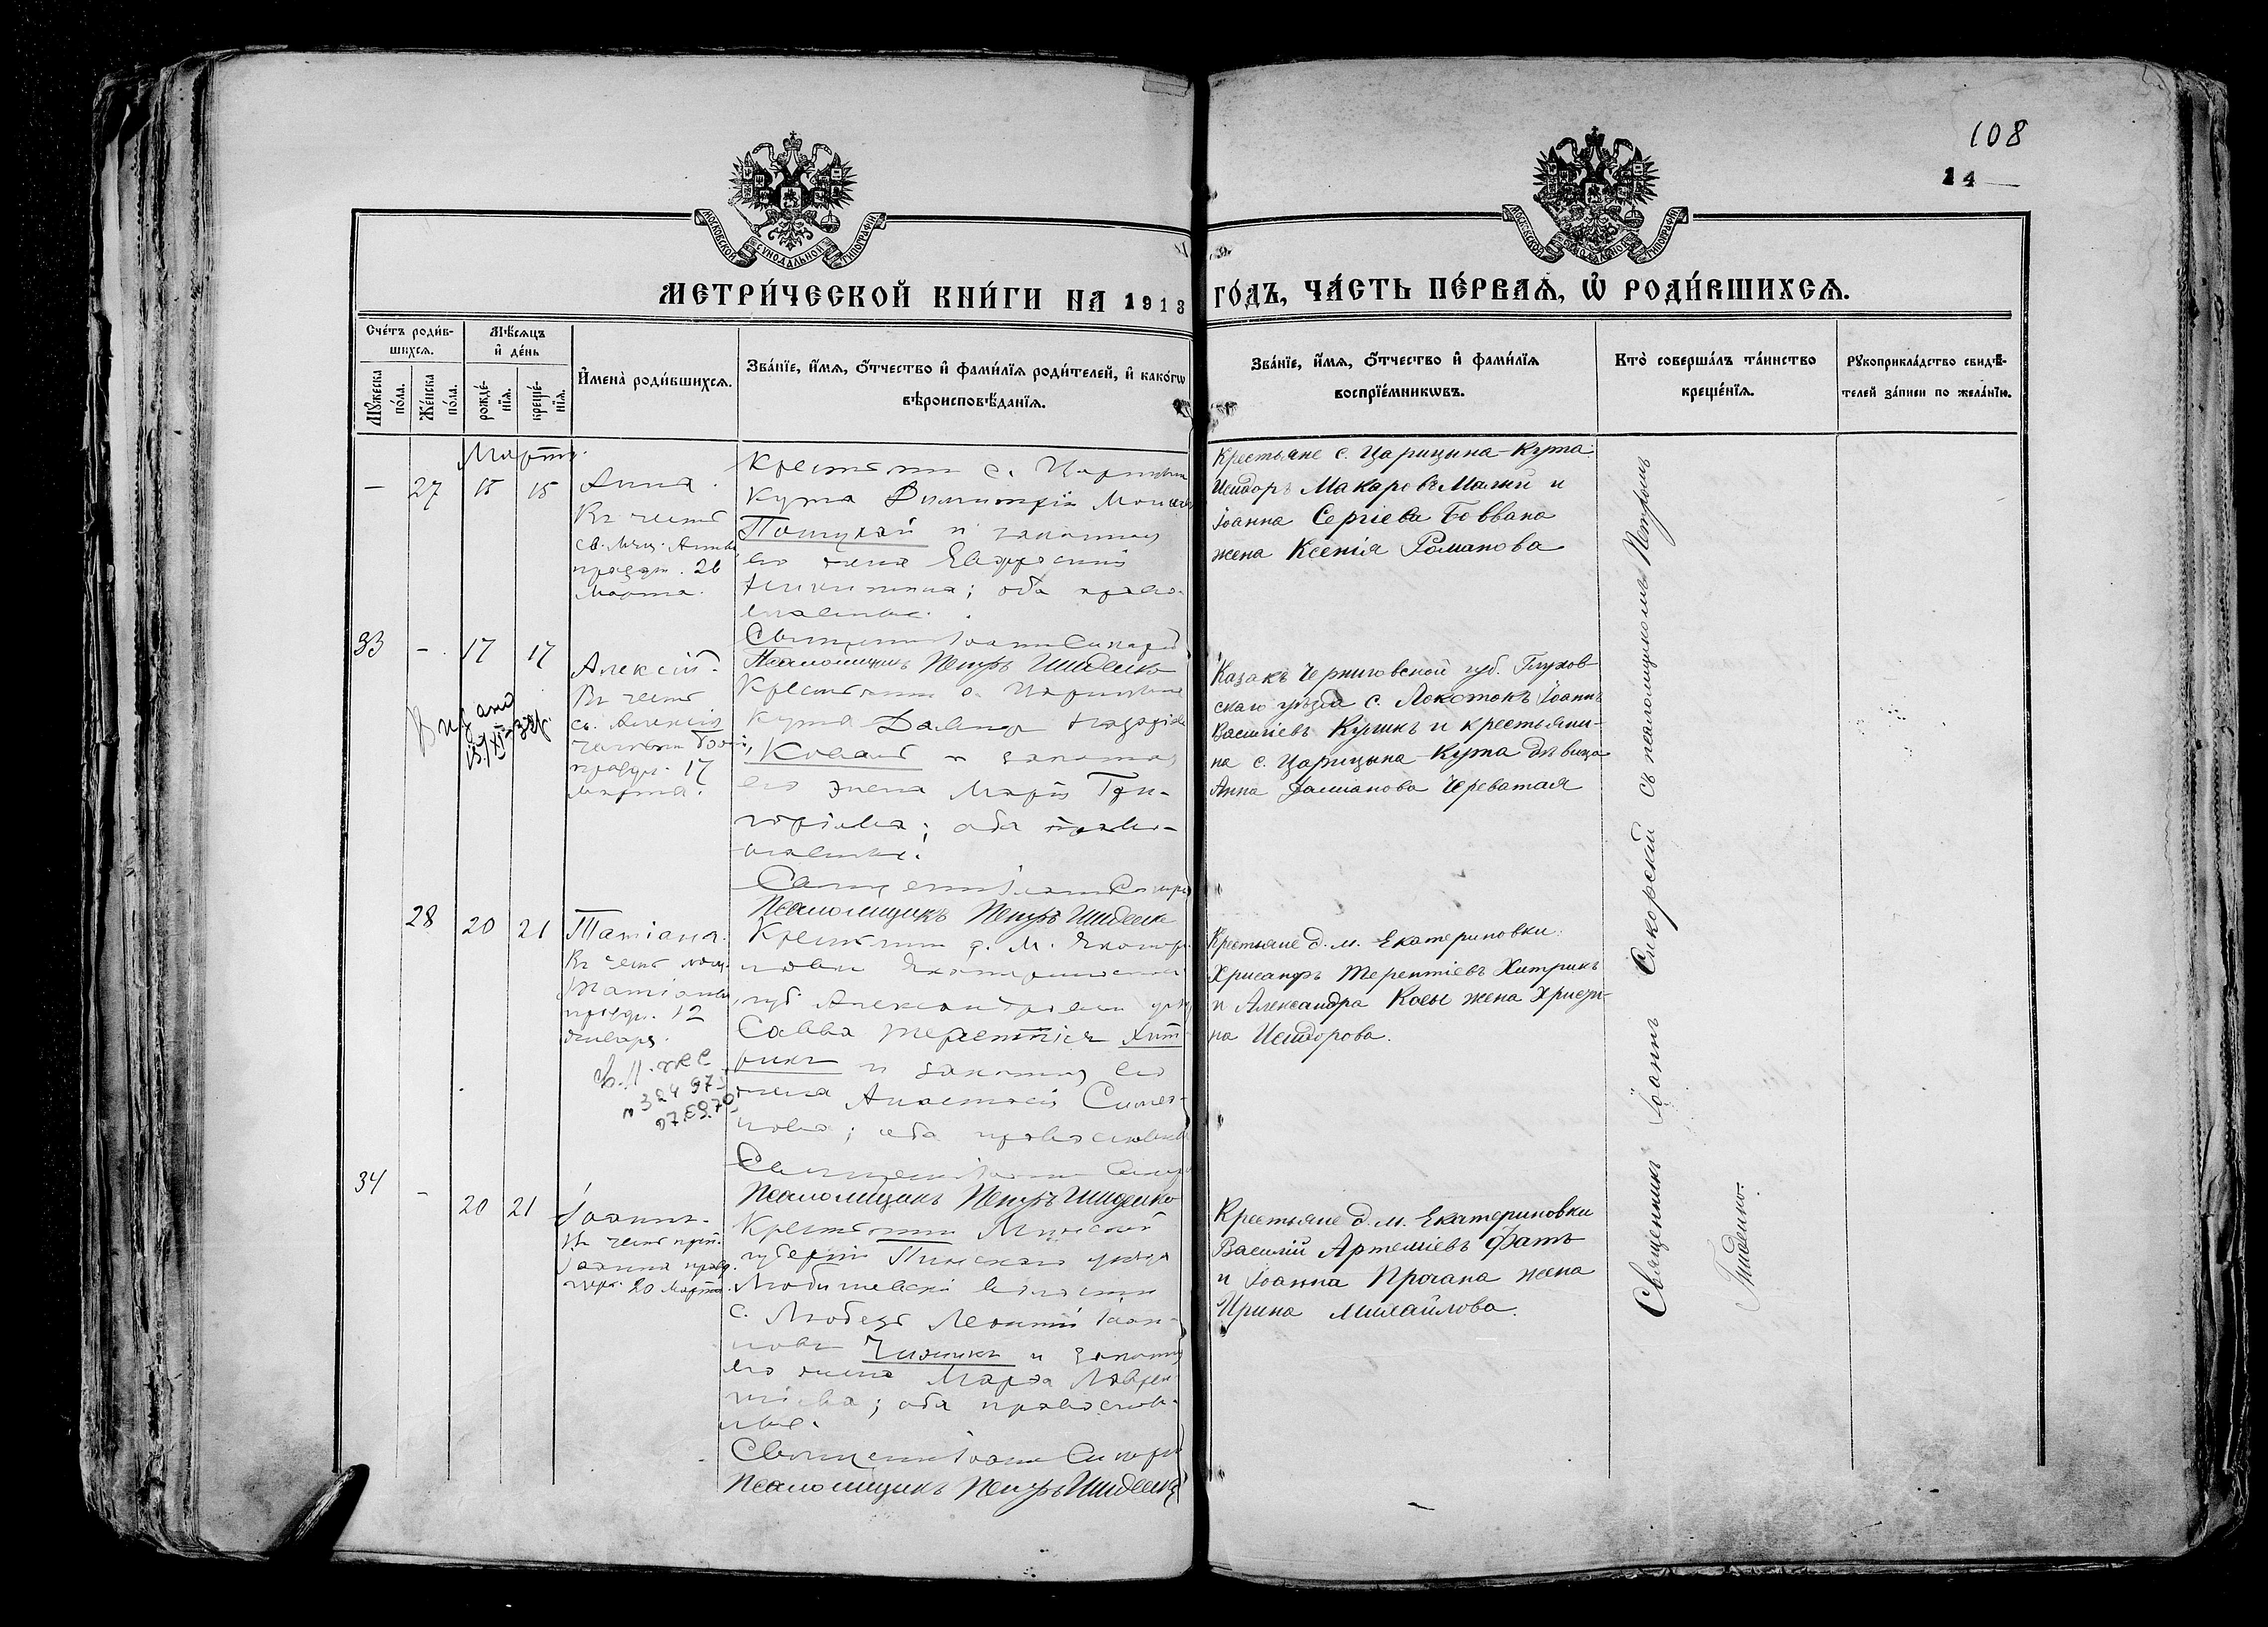 108
14
МОСКОВСКОЙ СУНОДАЛЬНОЙ ТИПОГРАФІИ
МОСКОВСКОЙ СУНОДАЛЬНОЙ ТИПОГРАФІИ
МЕТРИ́ЧЕСКОЙ КНИ́ГИ НА 1913 ГО́ДЪ, ЧА́СТЬ ПЕ́РВАѦ, Ѡ҆ РОДИ́ВШИХСѦ.
Сче́тъ роди́в-
шихсѧ.
Мꙋ́жеска по́ла.
Же́нска по́ла.
Мѣ́сѧцъ
и҆ де́нь
рожде́-нїѧ.
креще́-нїѧ.
И҆мена̀ роди́вшихсѧ.
Зва́нїе, и҆́мѧ, ѻ҆́тчество и҆ фами́лїѧ роди́телей, и҆ како́гѡ
вѣроисповѣ́данїѧ.
Зва́нїе, и҆́мѧ, ѻ҆́тчество и҆ фами́лїѧ
воспрїе́мникѡвъ.
Кто̀ соверша́лъ та́инство
креще́нїѧ.
Рꙋкоприкла́дство свидѣ́-
телей за́писи по жела́нїю.
Мартъ.
— 27 15 15
Анна.
Въ честь
св. муч. Анны
празд. 26
Марта.
Крестьянинъ с. Царицына
Кута Димитрій
и законная
его жена Евфросинія
Никитина; оба право-
славные.
Священникъ Іоаннъ Сикорскій
Псаломщикъ Петръ Гниденко
Крестьяне с. Царицына-Кута:
Исидоръ Макаровъ Малый и
Іоанна Сергіева Боввана
жена Ксенія Романова
33 — 17 17
Алексій.
Въ честь
св. Алексія
человѣка Божія,
празд. 17
Марта.
Видано
15/XI
Крестьянинъ с. Царицына
Кута Давидъ
Коваль и законная
его жена Марія Гри-
горіева; оба право-
славные.
Священникъ Іоаннъ Сикорскій
Псаломщикъ Петръ Гниденко
Казакъ Черниговской губ. Глухов-
скаго уѣзда с. Локотокъ Іоаннъ
Васильевъ Куликъ и крестьян-
ка с. Царицына-Кута дѣвица
Анна Даміанова Череватая
28 20 21
Татіана.
Въ честь муч.
Татіаны,
празд. 12
Января.
Крестьянинъ д. М. Екатери-
новки Екатеринославской
губ. Александровскаго уѣзда
Савва Терентіевъ Хит-
рикъ и законная его
жена Анастасія Симео-
нова; оба православные
Священникъ Іоаннъ Сикорскій
Псаломщикъ Петръ Гниденко
Крестьяне д. м. Екатериновки:
Хрисанфъ Терентіевъ Хитрикъ
и Александра Косы жена Христи-
на Исидорова.
34 — 20 21
Іоаннъ.
Въ честь преп.
Іоанна
20 Марта.
Крестьянинъ Минской
губерніи Пинскаго уѣзда
Любишевской волости
с. Любязь Леонтій Іоан-
новъ Чижикъ и законная
его жена Марѳа Лаврен-
тіева; оба православ-
ные.
Священникъ Іоаннъ Сикорскій
Псаломщикъ Петръ Гниденко
Крестьяне д. м. Екатериновки
Василій Артеміевъ Фатъ
и Іоанна жена
Ирина Михайлова.
Священникъ Іоаннъ Сикорскій съ псаломщикомъ Петромъ
Гниденко.